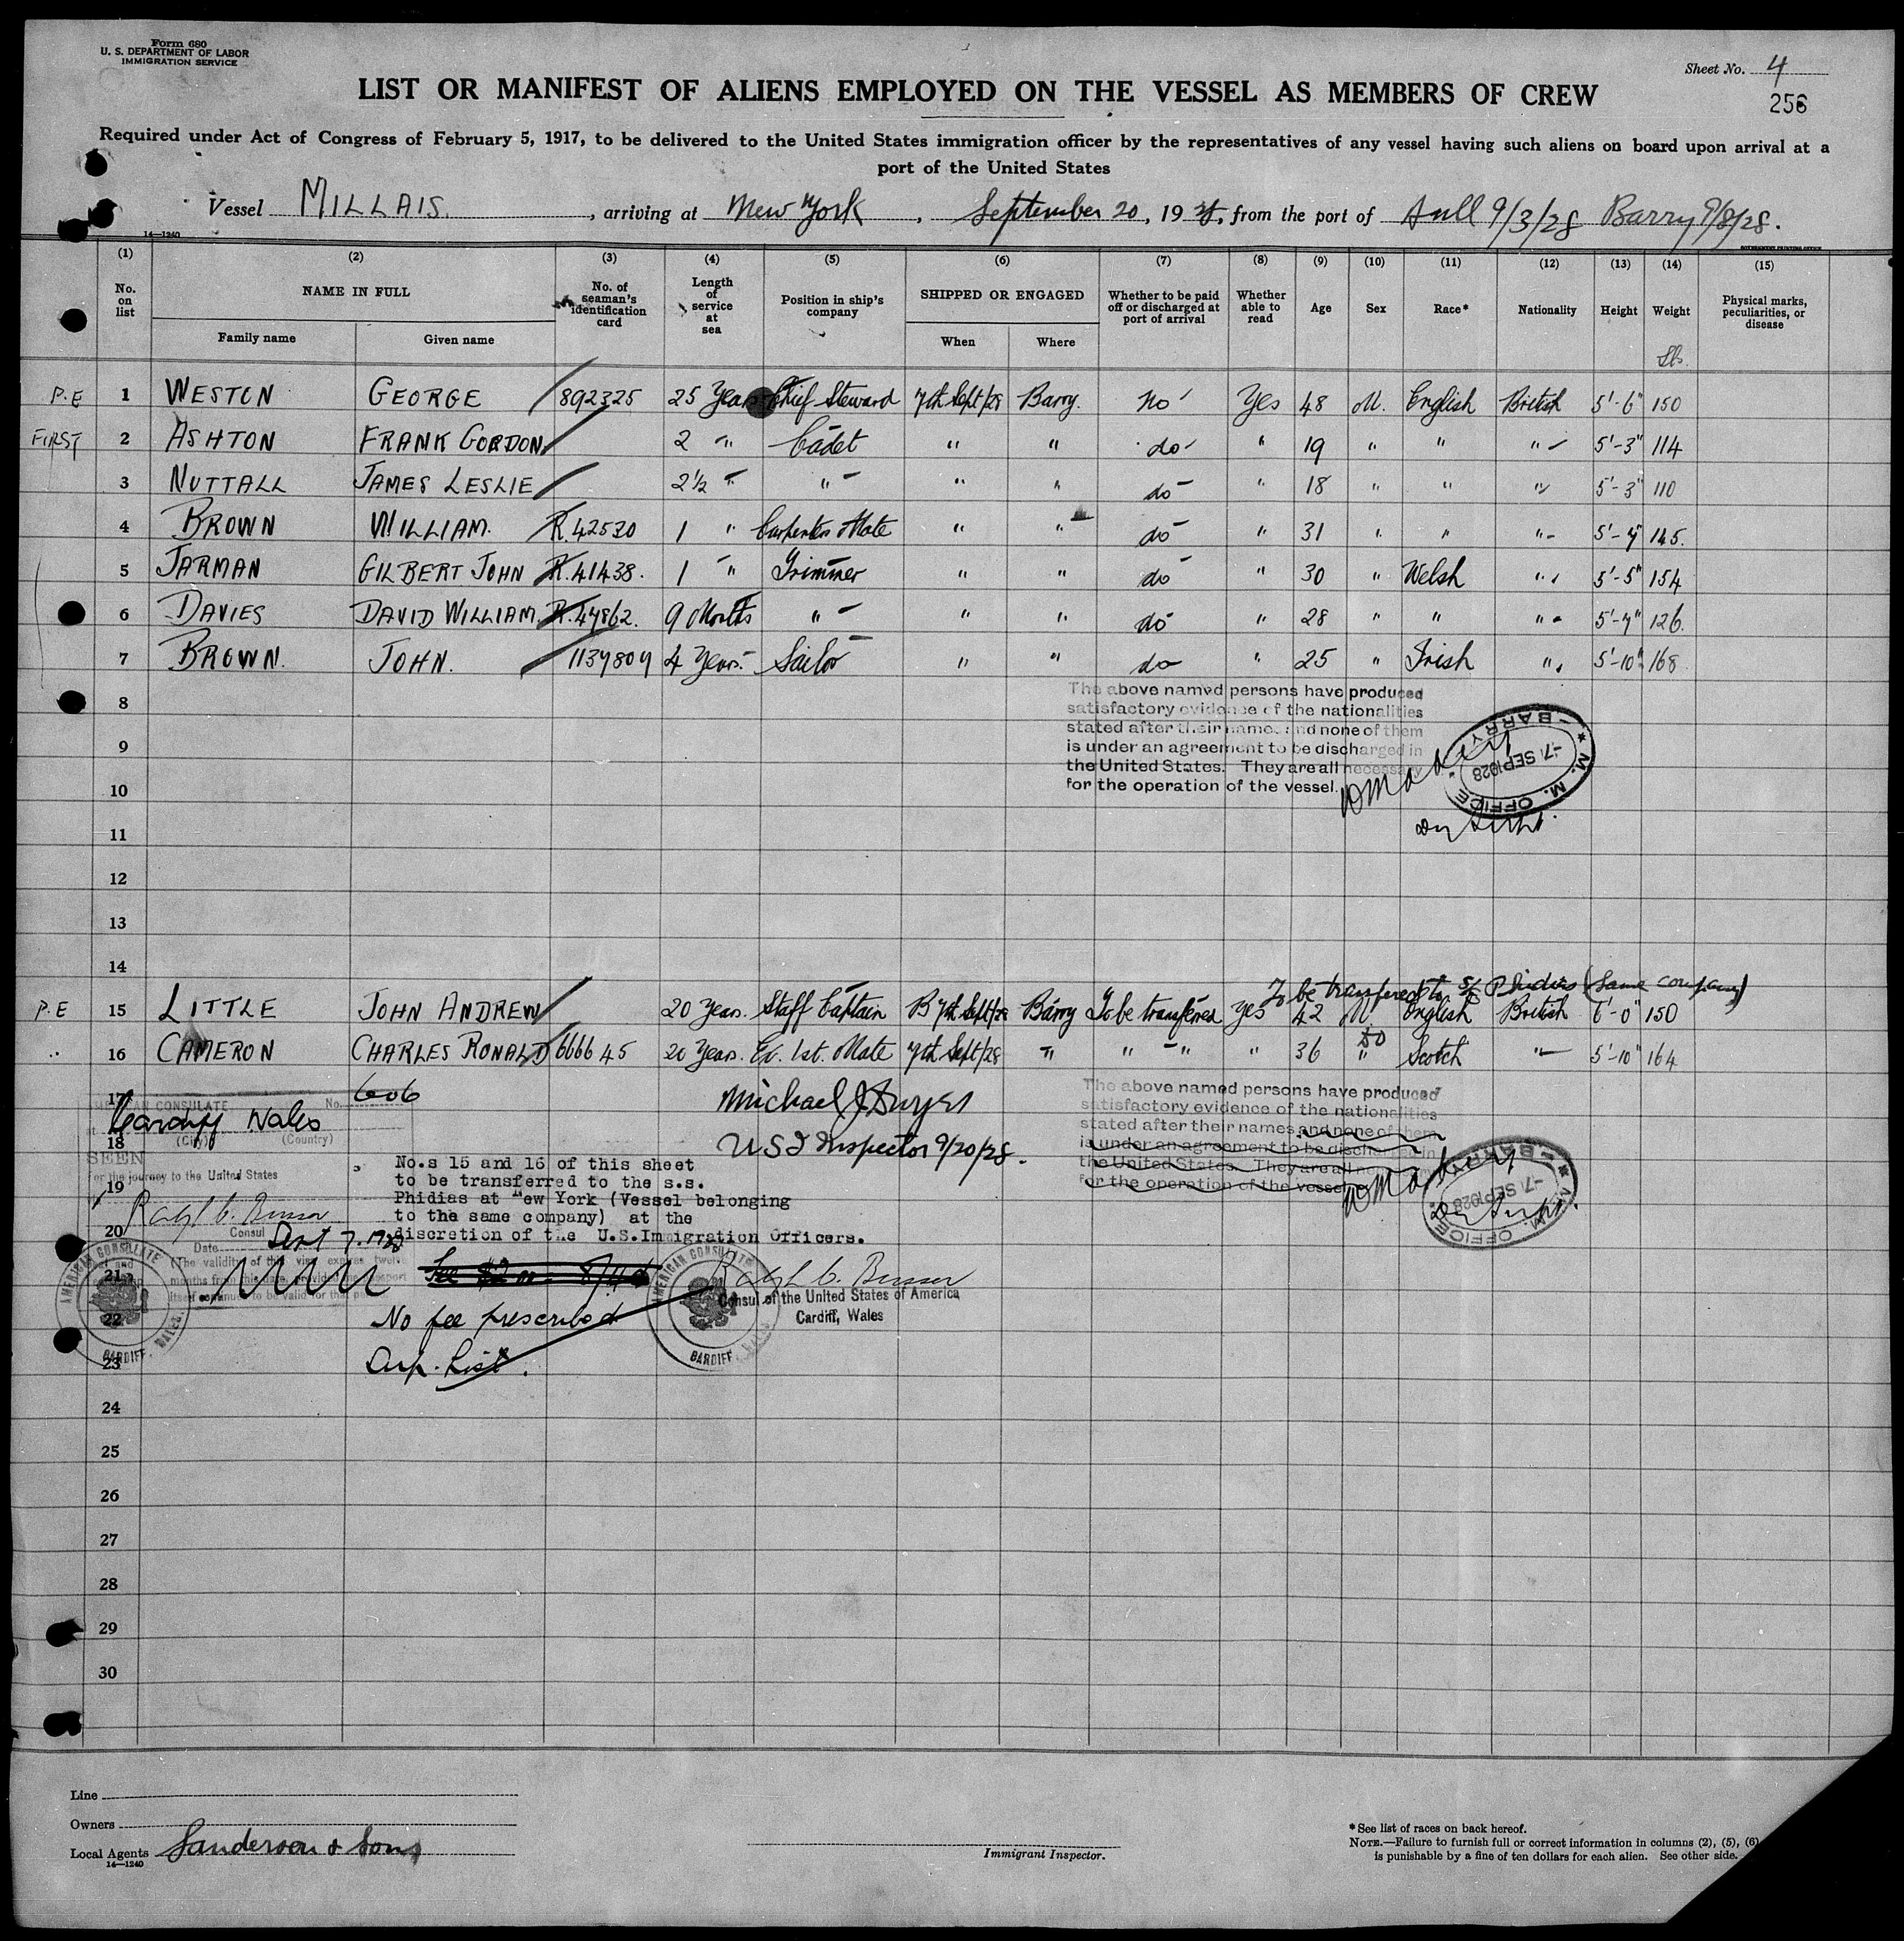 Form 680
U. S. DEPARTMENT OF LABOR
IMMIGRATION SERVICE
Sheet No. 4
256
LIST OR MANIFEST OF ALIENS EMPLOYED ON THE VESSEL AS MEMBERS OF CREW
Required under Act of Congress of February 5, 1917, to be delivered to the United States immigration officer by the representatives of any vessel having such aliens on board upon arrival at a
port of the United States
Vessel MILLAIS., arriving at New York, September 20, 19 28, from the port of Hull 9/3/28 Barry 9/8/28.
14—1240
GOVERNMENT PRINTING OFFICE
(1) (2) (3) (4) (5) (6) (7) (8) (9) (10) (11) (12) (13) (14) (15)
No. on list NAME IN FULL Family name Given name No. of seaman's identification card Length of service at sea Position in ship's company SHIPPED OR ENGAGED When Where Whether to be paid off or discharged at port of arrival Whether able to read Age Sex Race* Nationality Height Weight Physical marks, peculiarities, or disease
Lbs.
P.E 1 WESTON GEORGE 892325 25 Years Chief Steward 7th Sept/28 Barry. No Yes 48 M. English British 5'-6" 150
FIRST 2 ASHTON FRANK GORDON 2 " Cadet " " do " 19 " " " 5'-3" 114
3 NUTTALL JAMES LESLIE 2½ " " " " do " 18 " " " 5'-3" 110
4 BROWN WILLIAM. R.42530 1 " Carpenters Mate " " do " 31 " " " 5'-7" 145.
5 JARMAN GILBERT JOHN R.41438. 1 " Trimmer " " do " 30 " Welsh " 5'-5" 154
6 DAVIES DAVID WILLIAM. R.47862. 9 Months " " " do " 28 " " " 5'-7" 126.
7 BROWN. JOHN. 1137807 4 Years. Sailor " " do " 25 " Irish " 5'-10" 168
8
The above named persons have produced
satisfactory evidence of the nationalities
stated after their names and none of them
9
is under an agreement to be discharged in
the United States. They are all necessary
10
for the operation of the vessel.
M. M. OFFICE BARRY
-7 SEP 1928
11
12
13
14
To be transferred to S/S Phidias (Same company)
P.E 15 LITTLE JOHN ANDREW 20 Years. Staff Captain 7th Sept/28 Barry To be transferred Yes 42 M English British 6'-0" 150
" 16 CAMERON CHARLES RONALD 666645 20 Years. Ex. 1st. Mate 7th Sept/28 " " " " 36 " Scotch " 5'-10" 164
17
AMERICAN CONSULATE No. 606
Cardiff Wales
18
(City) (Country)
SEEN
For the journey to the United States
19
Ralph C. Busser
20
Consul
Date Sept 7. 1928
(The validity of this visa expires twelve
21
months from this date, provided the passport
itself continues to be valid for that period)
22
23
AMERICAN CONSULATE CARDIFF, WALES
Michael J Dwyer
U S I Inspector 9/20/28.
No.s 15 and 16 of this sheet
to be transferred to the s.s.
Phidias at New York (Vessel belonging
to the same company) at the
discretion of the U.S.Immigration Officers.
Fee $2.00
No fee prescribed
Sup. List.
AMERICAN CONSULATE CARDIFF, WALES
Ralph C. Busser
Consul of the United States of America
Cardiff, Wales
The above named persons have produced
satisfactory evidence of the nationalities
stated after their names and none of them
is under an agreement to be discharged in
the United States. They are all necessary
for the operation of the vessel.
M. M. OFFICE BARRY
-7 SEP 1928
24
25
26
27
28
29
30
Line
Owners
Local Agents Sanderson & Sons
14—1240
Immigrant Inspector.
*See list of races on back hereof.
NOTE.—Failure to furnish full or correct information in columns (2), (5), (6)
is punishable by a fine of ten dollars for each alien. See other side.